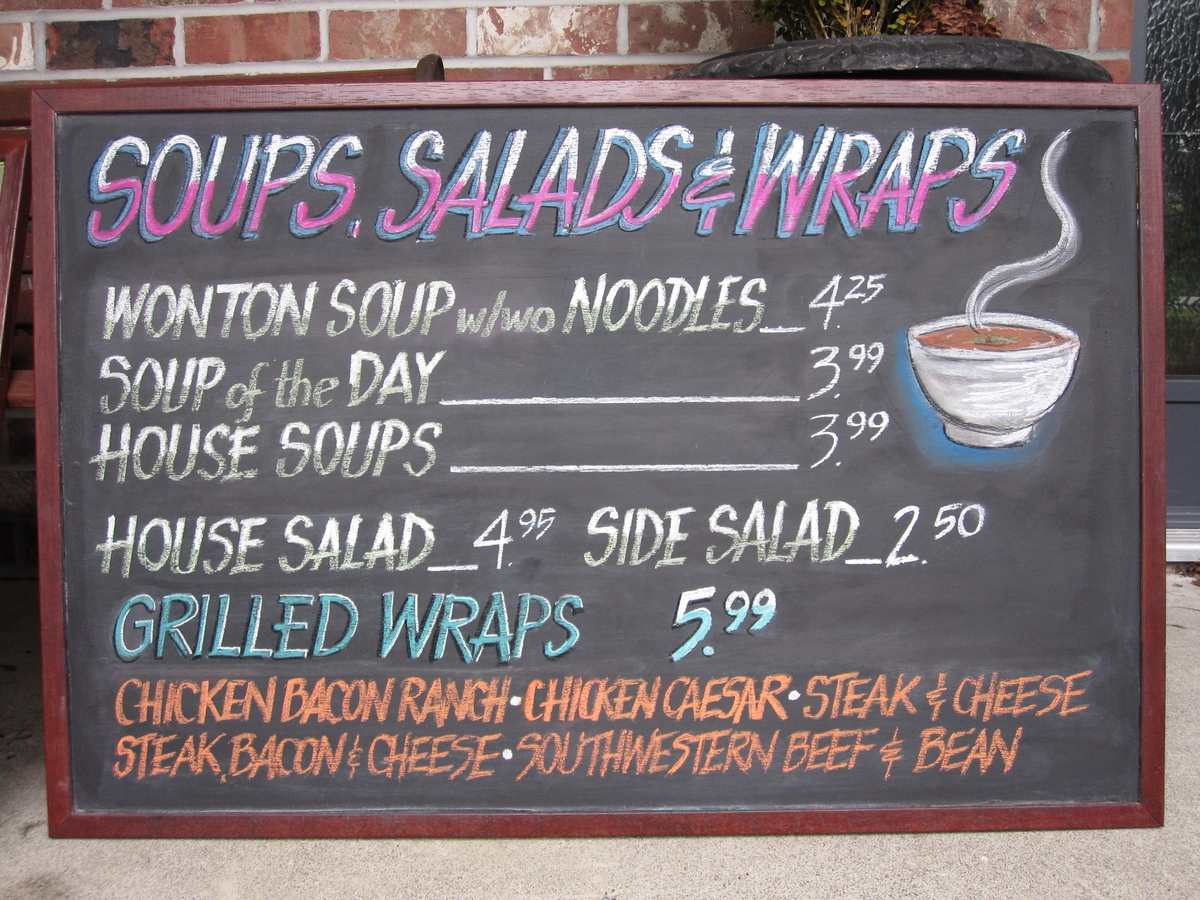 SOUPS, SALADS & WRAPS
WONTON SOUP w/wo NOODLES_ 4.25
SOUP of the DAY 3.99
HOUSE SOUPS 3.99
HOUSE SALAD_4.95 SIDE SALAD_2.50
GRILLED WRAPS 5.99
CHICKEN BACON RANCH • CHICKEN CAESAR • STEAK & CHEESE
STEAK, BACON & CHEESE • SOUTHWESTERN BEEF & BEAN